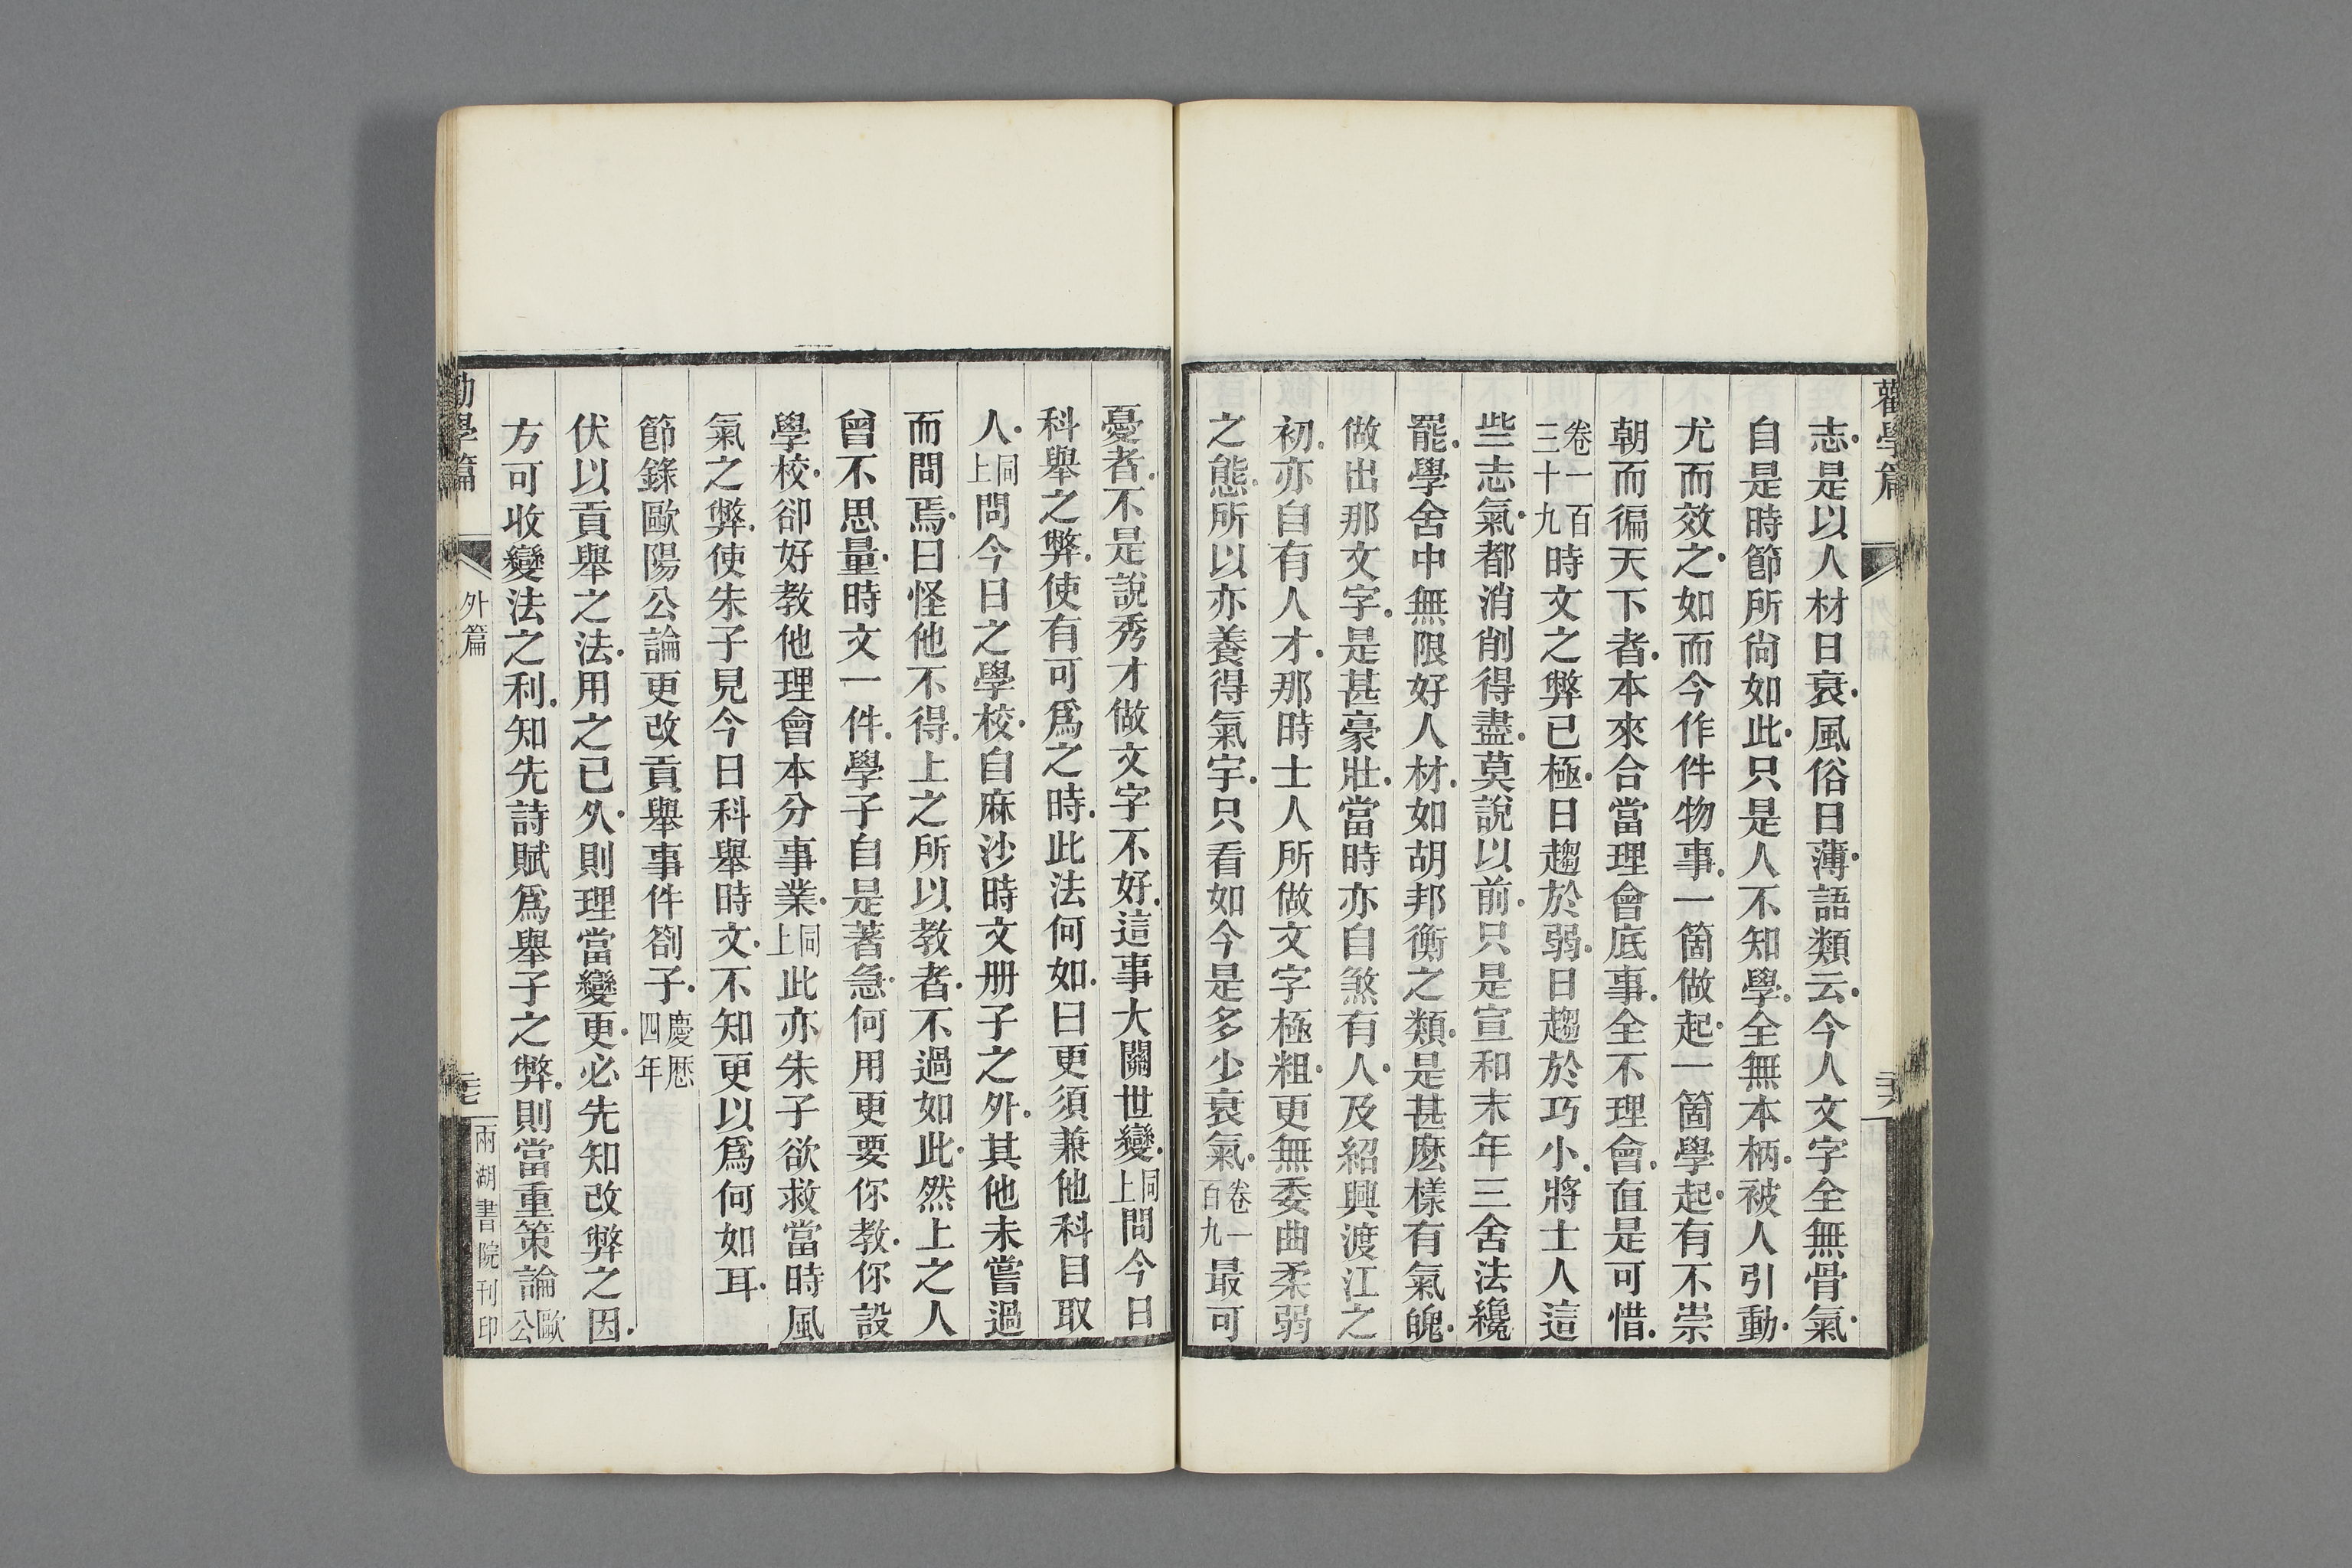 勸學篇
志是以人材日衰風俗日薄語類云今人文字全無骨氣
自是時節所尙如此只是人不知學全無本柄被人引動
尤而效之如而今作件物事一箇做起一箇學起有不崇
朝而徧天下者本來合當理會底事全不理會直是可惜
卷一百三十九時文之弊已極日趨於弱日趨於巧小將士人這
些志氣都消削得盡莫說以前只是宣和末年三舍法纔
罷學舍中無限好人材如胡邦衡之類是甚麽樣有氣魄
做出那文字是甚豪壯當時亦自煞有人及紹興渡江之
初亦自有人才那時士人所做文字極粗更無委曲柔弱
之態所以亦養得氣宇只看如今是多少衰氣卷一百九最可
憂者不是說秀才做文字不好這事大關世變同上問今日
科舉之弊使有可爲之時此法何如曰更須兼他科目取
人同上問今日之學校自麻沙時文册子之外其他未嘗過
而問焉曰怪他不得上之所以教者不過如此然上之人
曾不思量時文一件學子自是著急何用更要你教你設
學校卻好教他理會本分事業同上此亦朱子欲救當時風
氣之弊使朱子見今日科舉時文不知更以爲何如耳
節錄歐陽公論更改貢舉事件劄子慶厯四年
伏以貢舉之法用之已久則理當變更必先知改弊之因
方可收變法之利知先詩賦爲舉子之弊則當重策論歐公
勸學篇
外篇
兩湖書院刊印